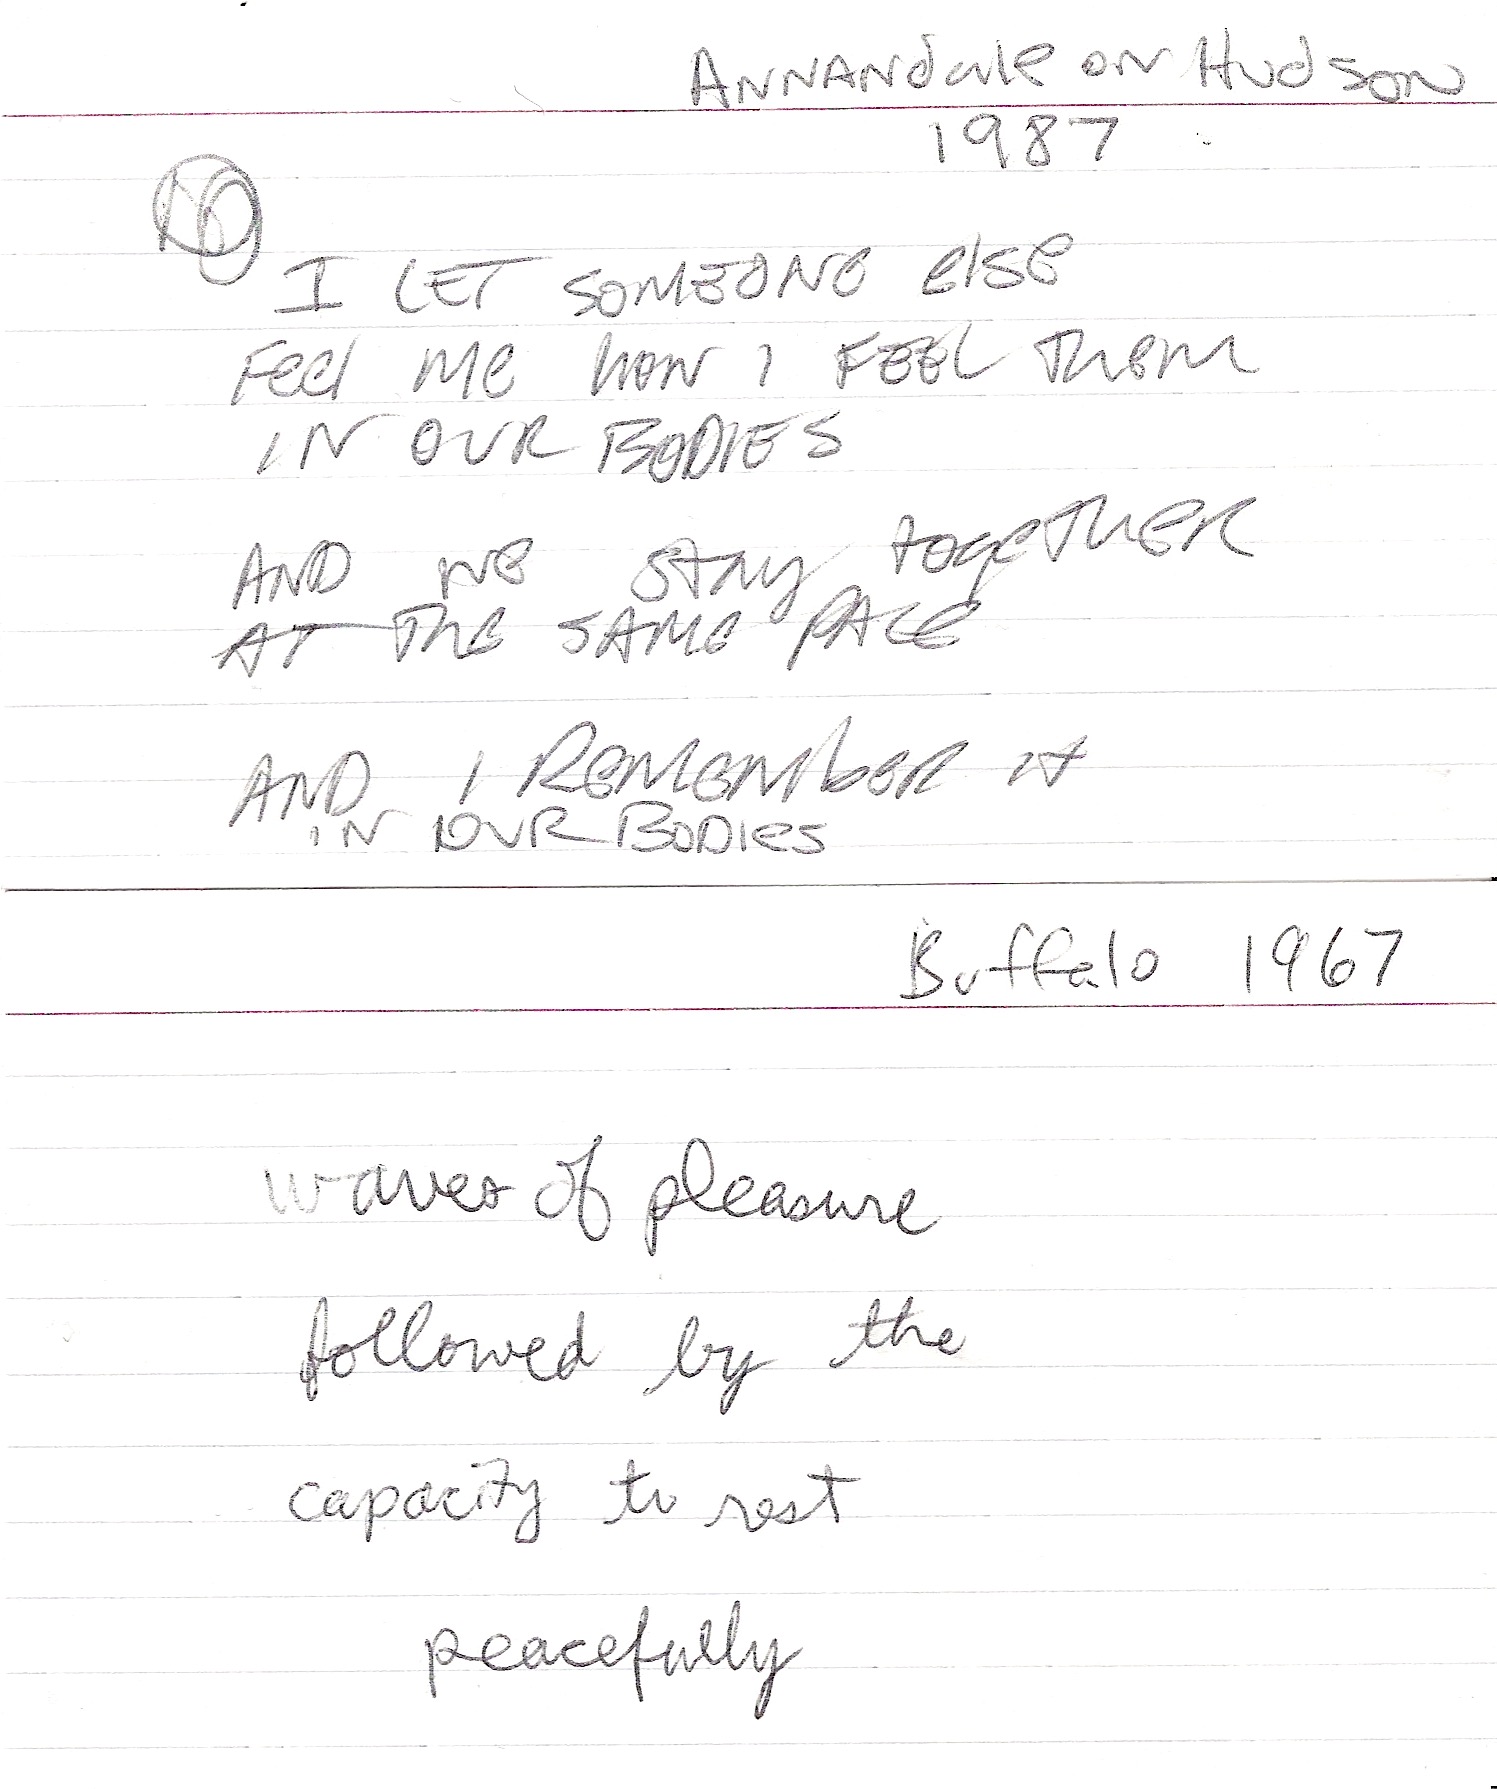 ANNANdale ON HudSON
1987
I LET SOMEONE else
Feel Me how I FEEL Them
IN OUR BODIES
AND we stay togeTHER
AT THE SAME PACE
AND I ReMeMber it
IN OUR BODies
Buffalo 1967
waves of pleasure
followed by the
capacity to rest
peacefully